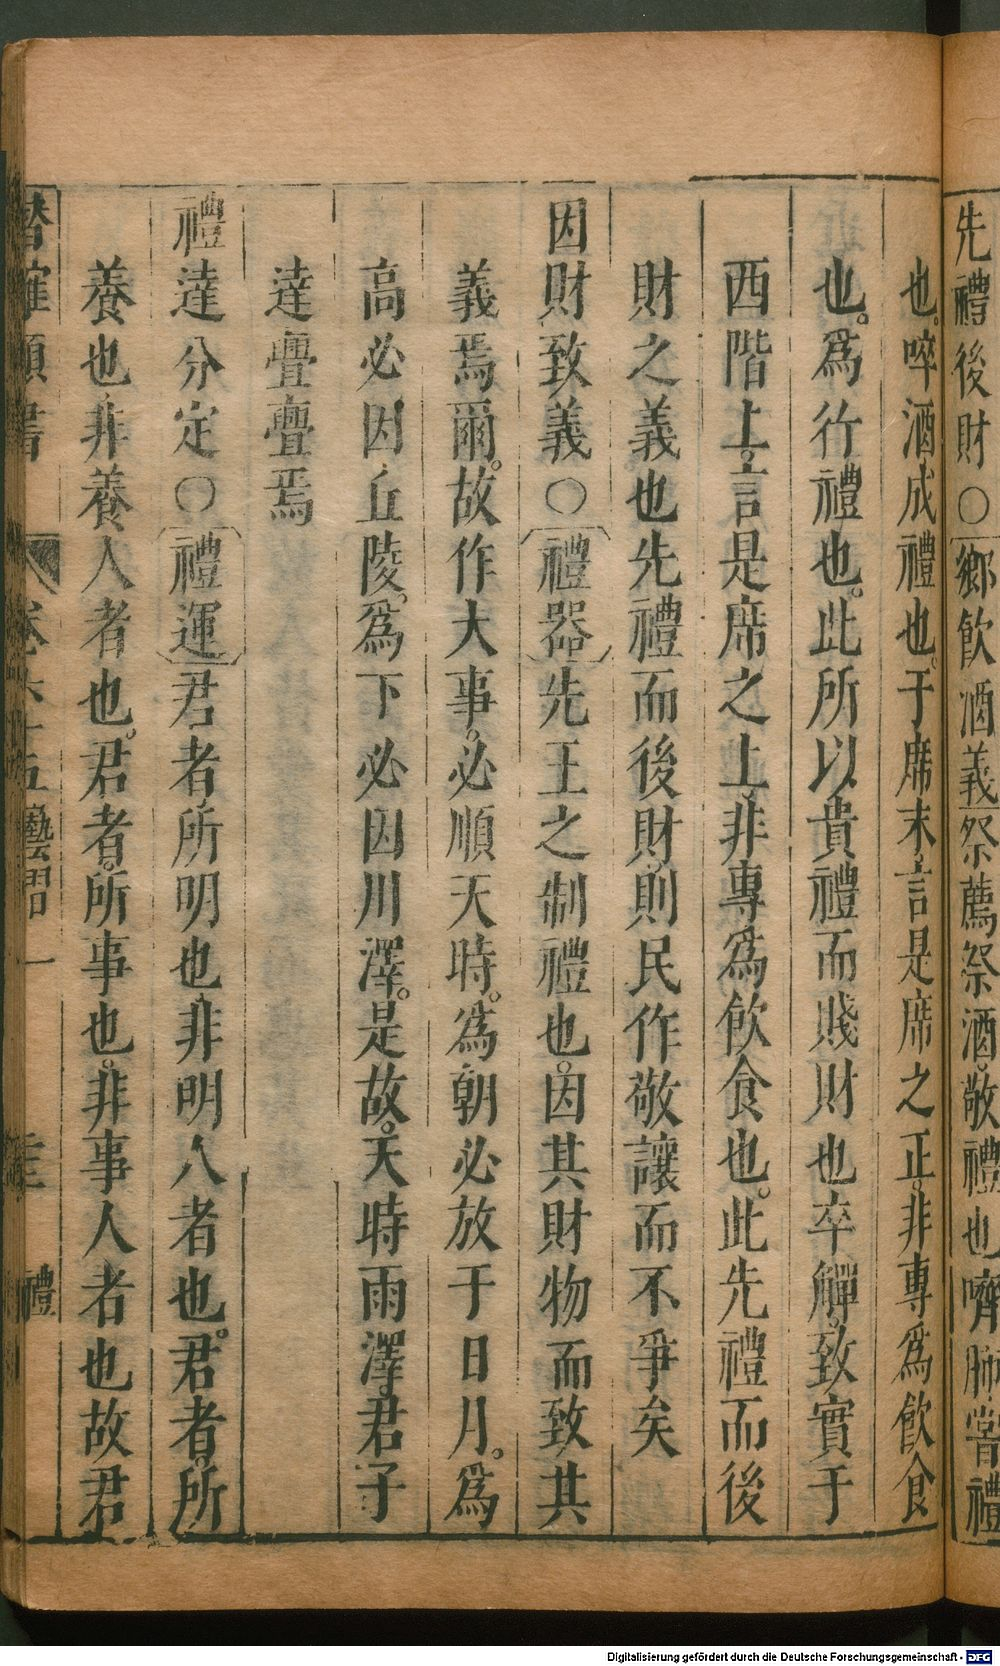 先禮後財○鄉飲酒義祭薦祭酒。敬禮也嚌肺。嘗禮
也。啐酒成禮也。于席末。言是席之正。非專爲飲食
也。爲行禮也。此所以貴禮而賤財也卒觶。致實于
西階上。言是席之上。非專爲飲食也。此先禮而後
財之義也先禮而後財。則民作敬讓而不爭矣
因財致義○禮器先王之制禮也。因其財物而致其
義焉爾。故作大事。必順天時。爲朝必放于日月。爲
高必因丘陵。爲下必因川澤。是故。天時雨澤。君子
達亹亹焉
禮達分定○禮運君者所明也非明人者也。君者。所
養也。非養人者也。君者。所事也。非事人者也故君
卷六十五 藝習一 禮
Digitalisierung gefördert durch die Deutsche Forschungsgemeinschaft - DFG